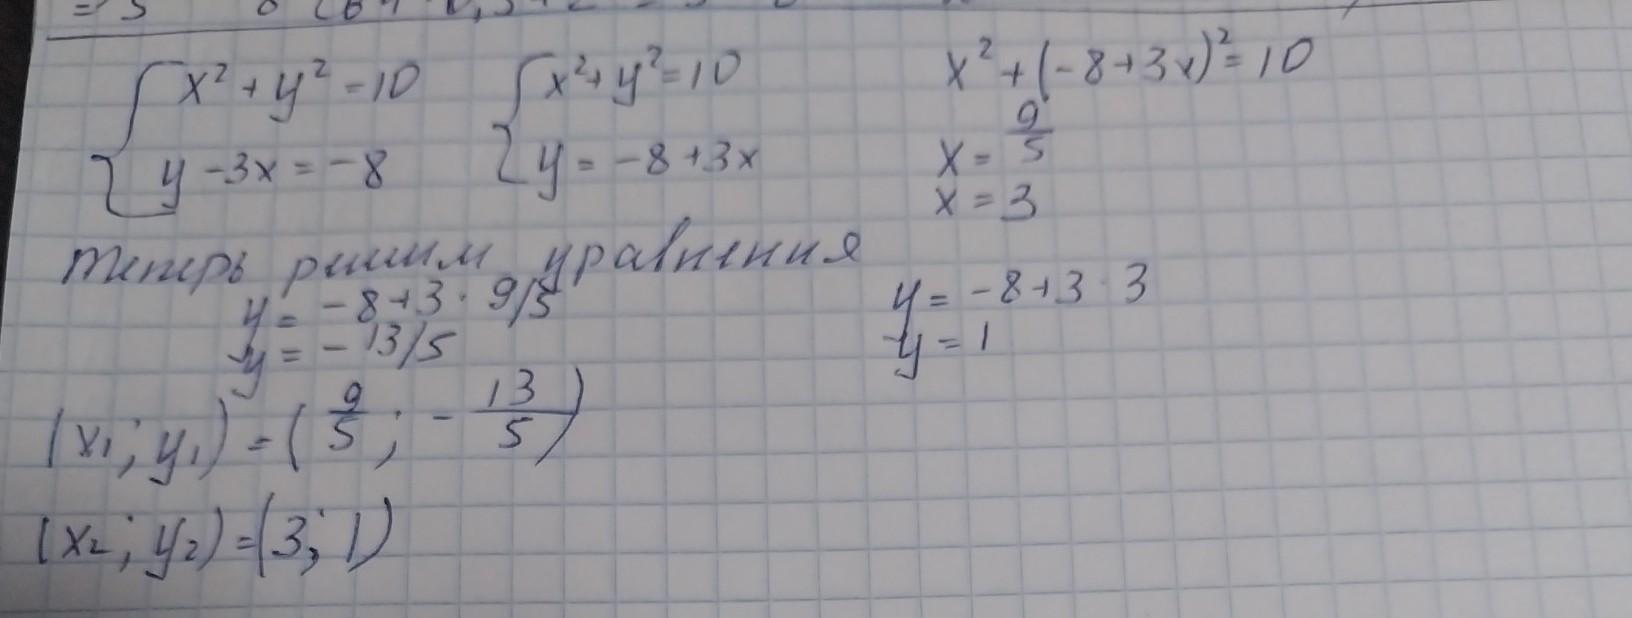 x² + y² = 10
y - 3x = -8
x² + y² = 10
y = -8 + 3x
x² + (-8 + 3x)² = 10
x = 9/5
x = 3
теперь решим уравнения
y = -8 + 3 · 9/5
y = - 13/5
y = -8 + 3 · 3
y = 1
(x₁; y₁) = (9/5; - 13/5)
(x₂; y₂) = (3; 1)